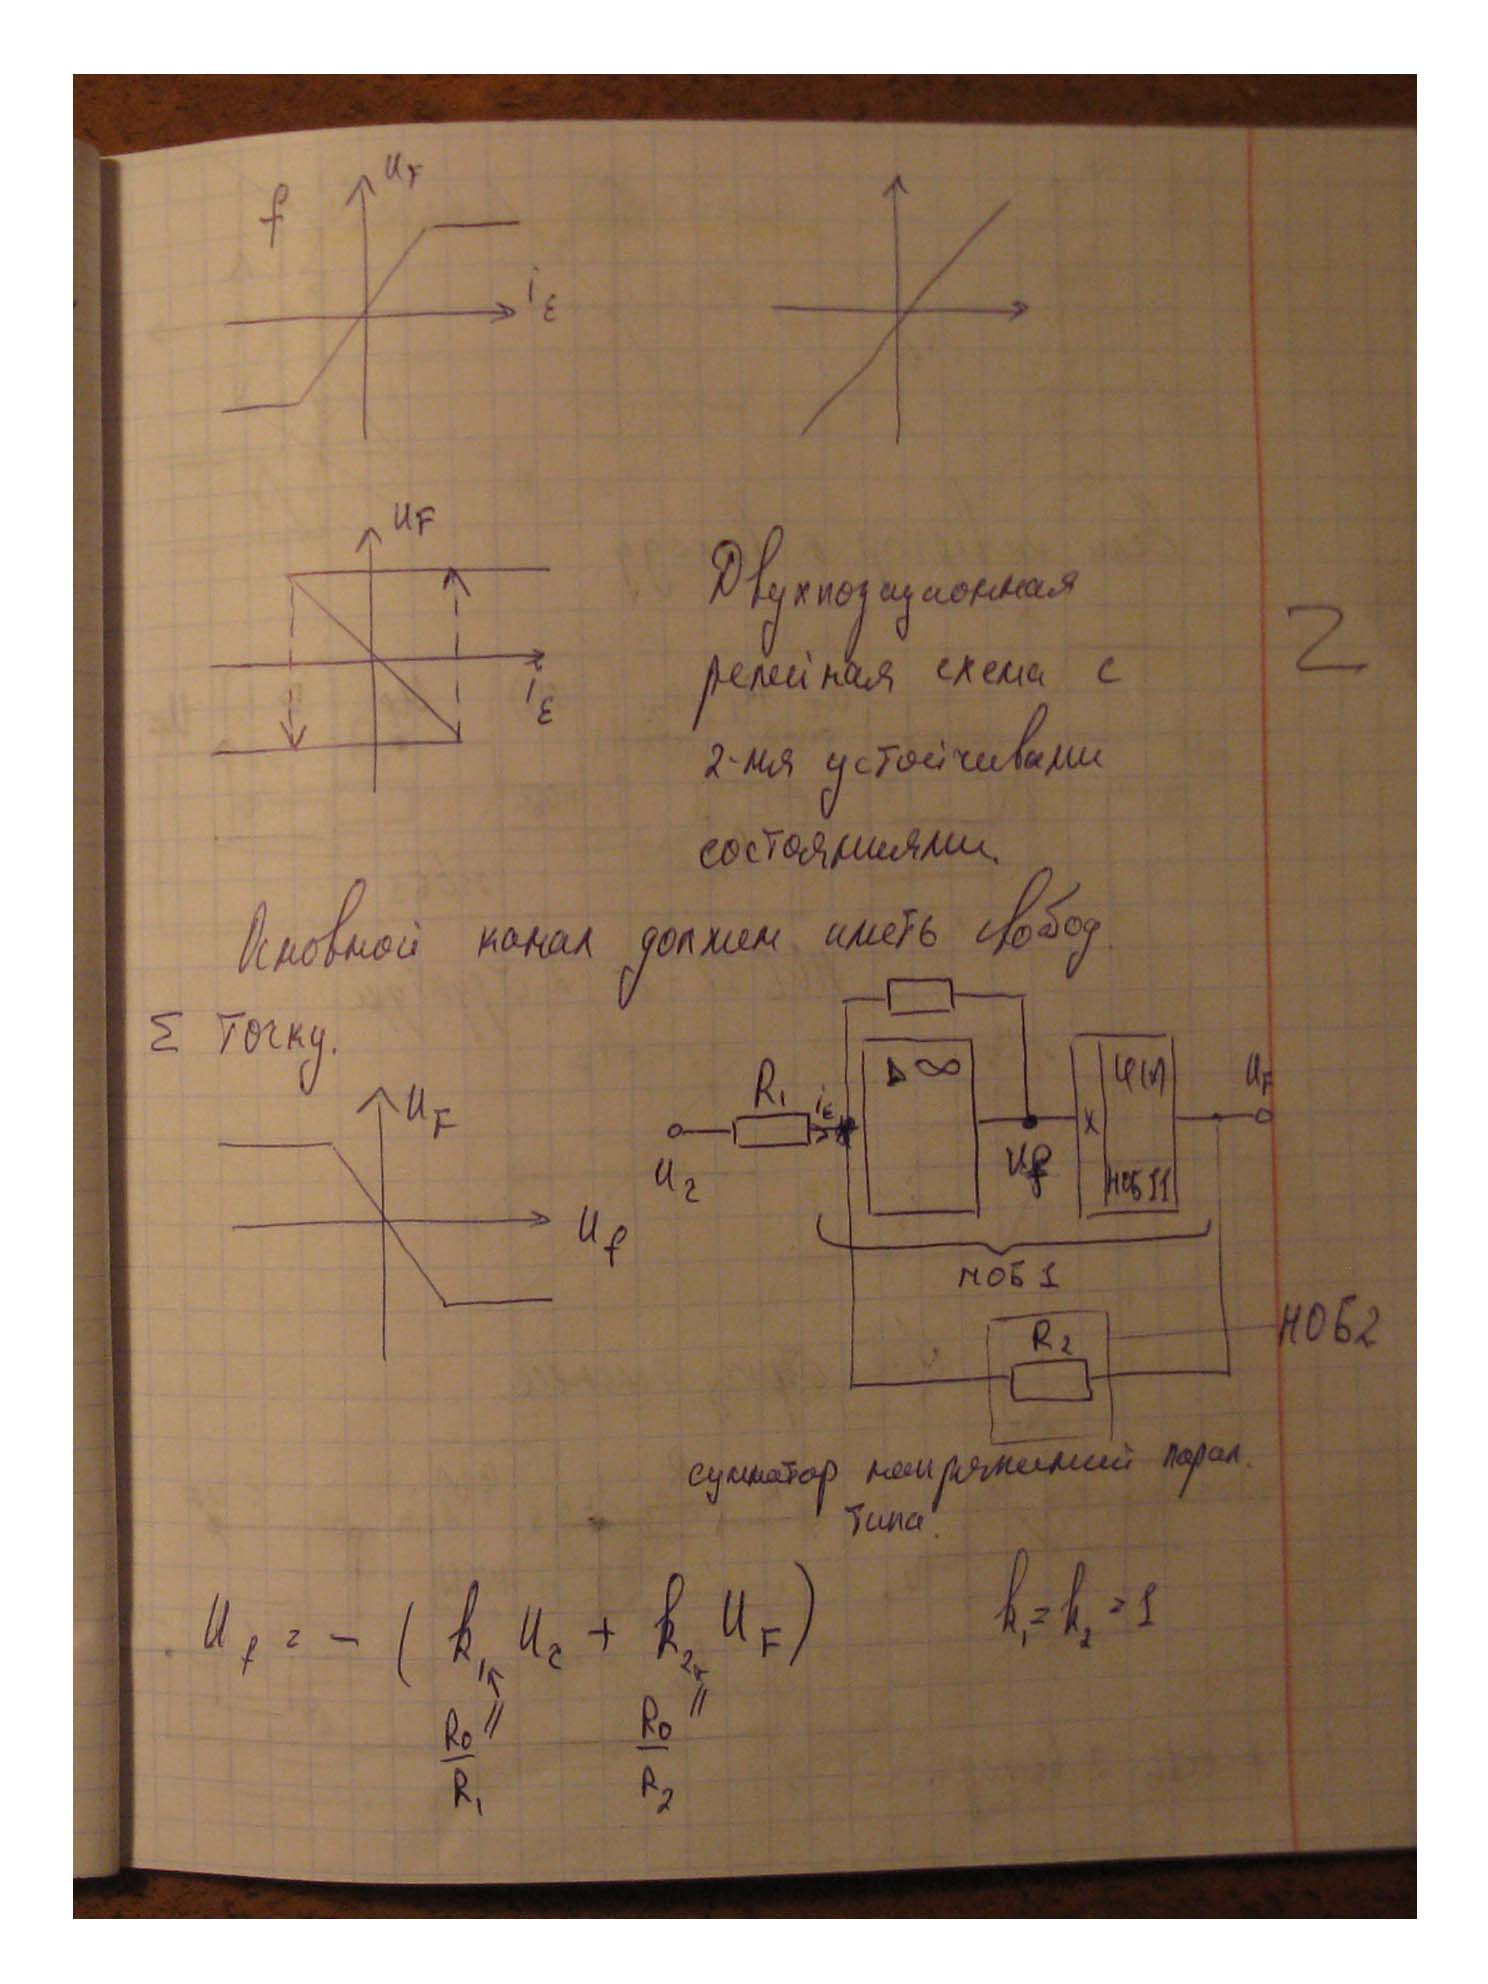 f
u_F
i_ε
u_F
i_ε
Двухпозиционная
релейная схема с
2-мя устойчивыми
состояниями.
2
Основной канал должен иметь свобод.
Σ точку.
u_F
u_f
R₁
i_ε
▷ ∞
u_г
u_f
x
НОБ11
u_F
НОБ1
R₂
НОБ2
сумматор напряжений парал.
типа.
u_f = - ( k₁ u_г + k₂ u_F )
k₁ = k₂ = 1
R₀/R₁
R₀/R₂